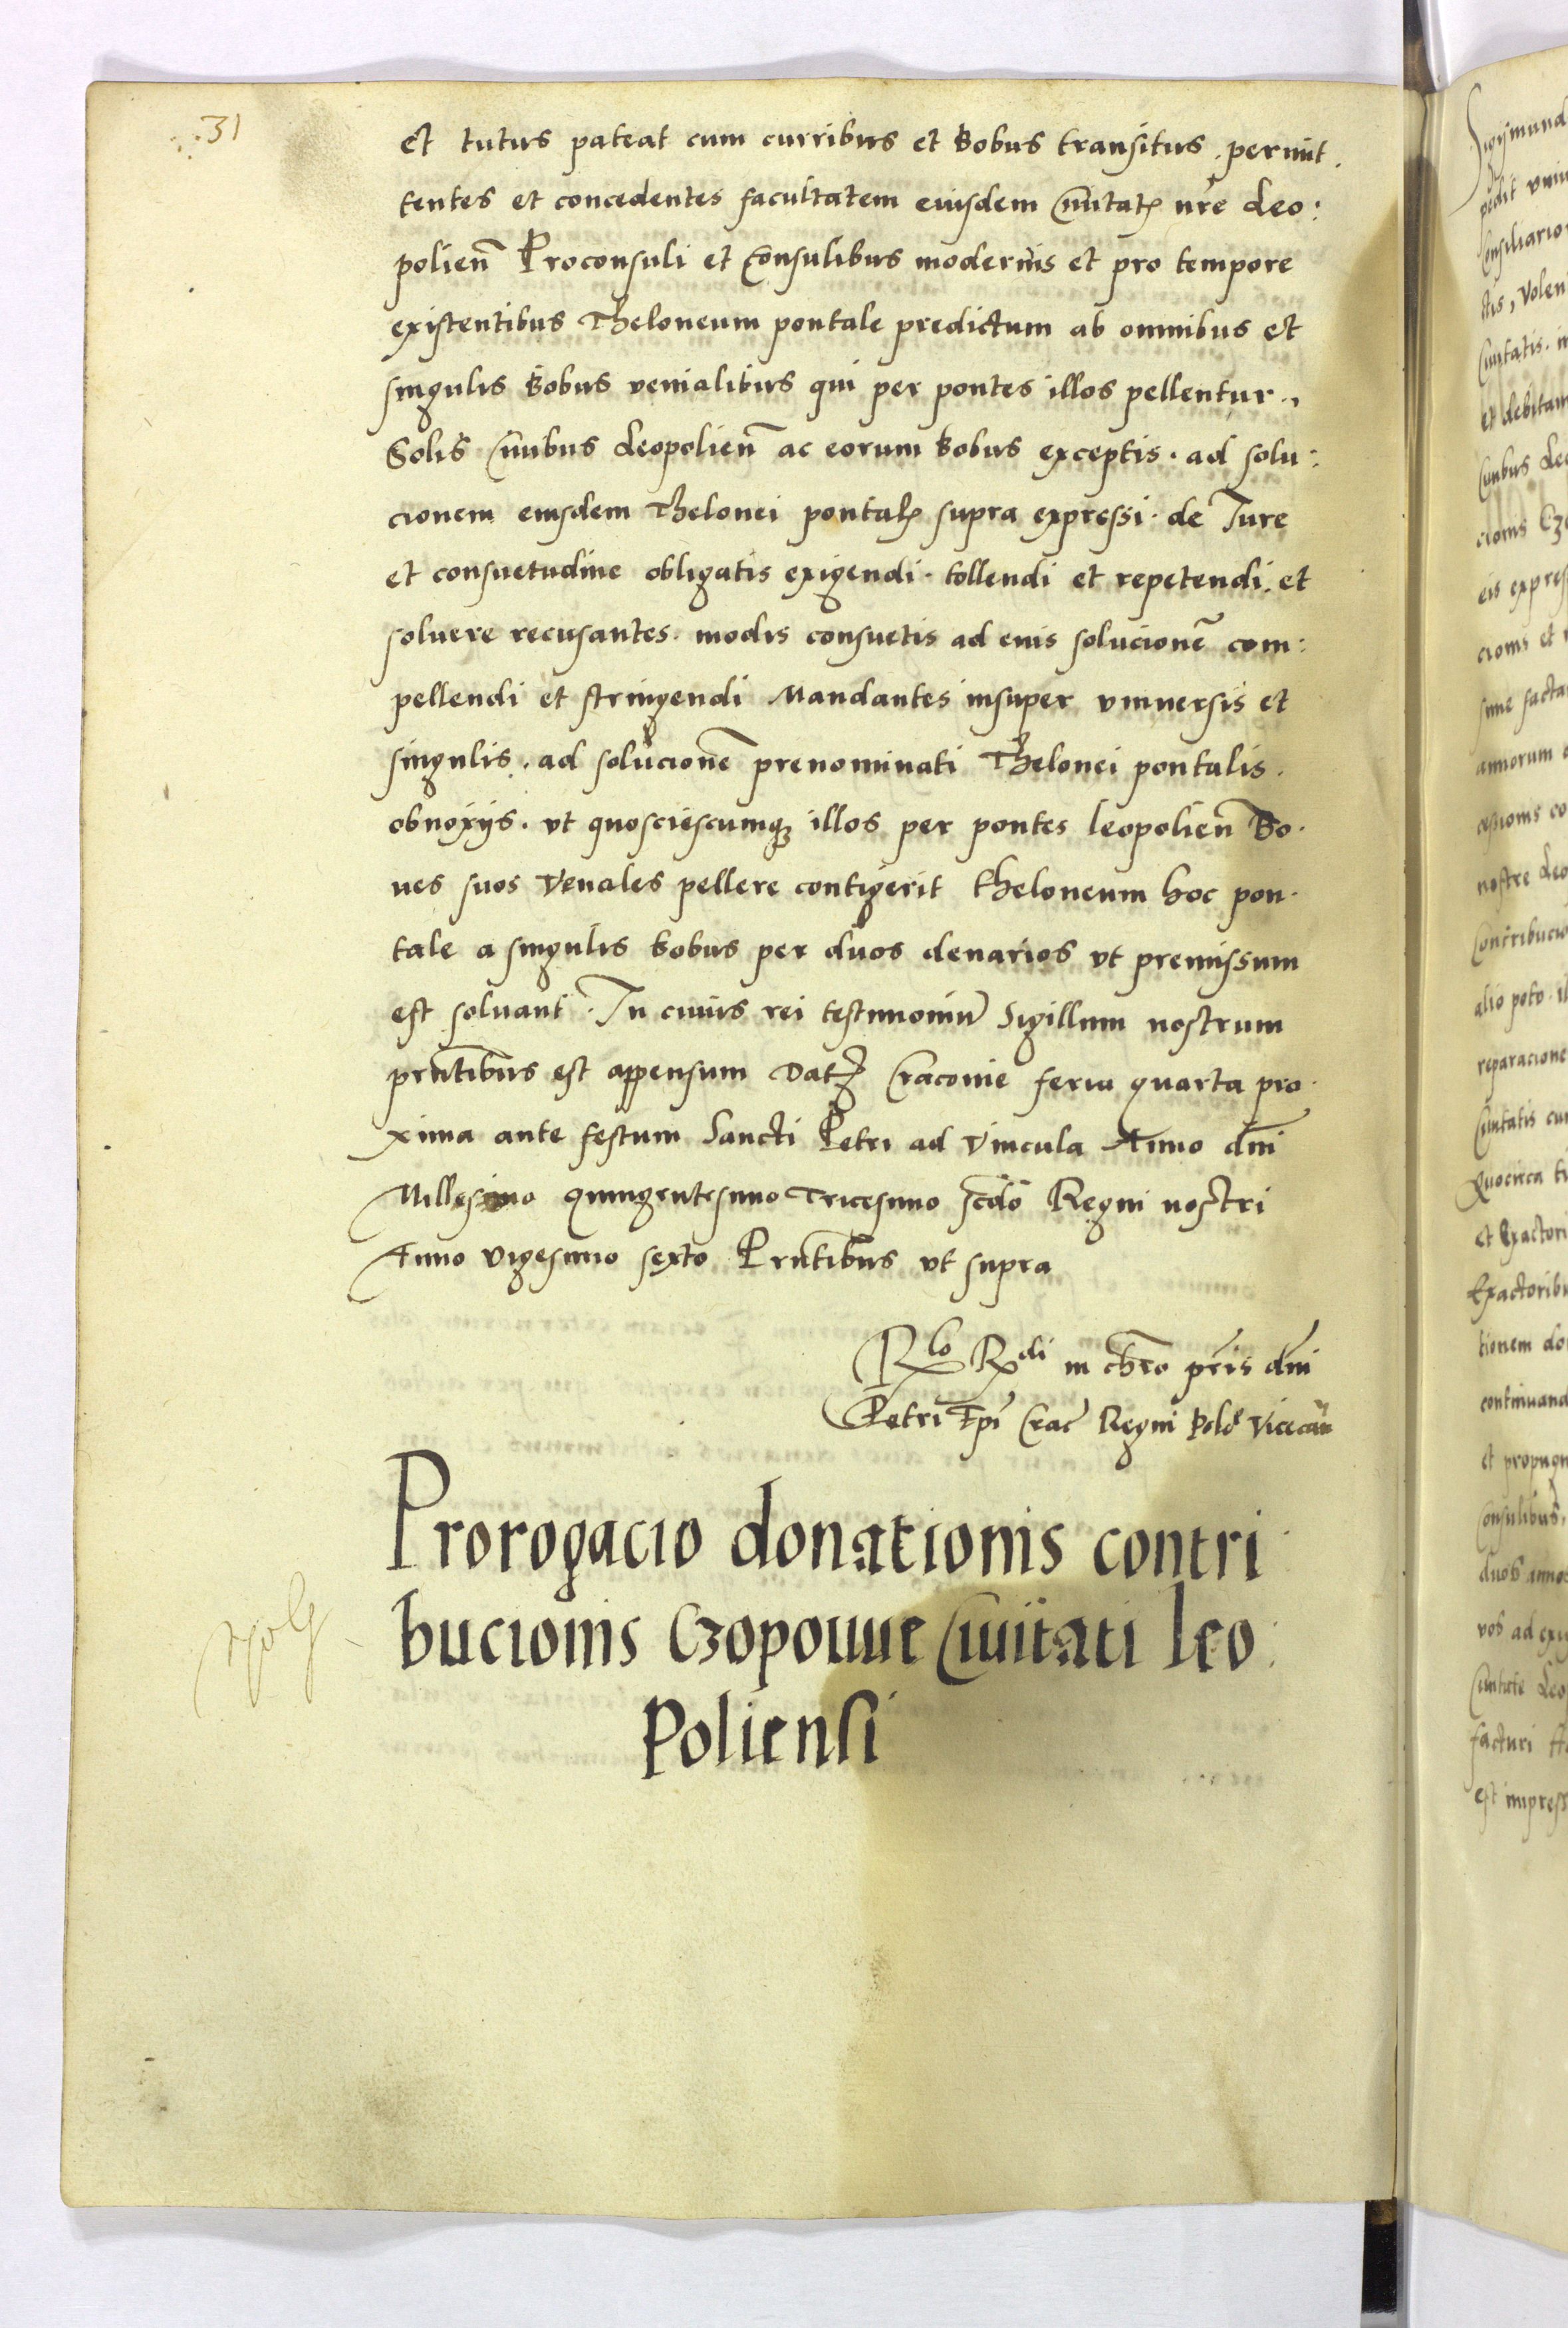 31
et tutus pateat cum curribus et bobus transitus. permit.
tentes et concedentes facultatem eiusdem Ciuitatꝭ nr̃e Leo:
polieñ Proconsuli et Consulibus modernis et pro tempore
existentibus Theloneum pontale predictum ab omnibus et
singulis bobus venialibus qui per pontes illos pellentur.,
Solis Ciuibus Leopolieñ ac eorum bobus exceptis. ad solu:
cionem eiusdem Thelonei pontalꝭ supra expressi. de Iure
et consuetudine obligatis exigendi. tollendi et repetendi. et
soluere recusantes. modis consuetis ad eius solucionẽ com:
pellendi et stringendi Mandantes insuper vniuersis et
singulis. ad solucionẽ prenominati Thelonei pontalis.
obnoxijs. vt quosciescumqꝫ illos per pontes leopolieñ Bo.
ues suos Venales pellere contigerit theloneum hoc pon.
tale a singulis bobus per duos denarios vt premissum
est soluant. In cuius rei testimoniũ Sigillum nostrum
prñtibus est appensum Datꝫ Cracouie feria quarta pro.
xima ante festum Sancti Petri ad Vincula Anno dñi
Millesimo quingentesimo Tricesimo scd̃o Regni nostri
Anno vigesimo sexto Prñtibus vt supra
Rlo Rdi in chr̃o pr̃is dñi
Petri Ep̃i Crac̃ Regni Pol Vicecan
Prorogacio donationis contri
bucionis Czopowe Ciuitati leo.
Poliensi
Sigismund
Consiliario
tis, Volen
Ciuitatis. i
et debitam
Ciuibus Leo
cionis Cz
eis expres
cionis et
siue facta
annorum
nostre Leo
contribucio
reparacione
Ciuitatis cu
Quocirca
et Exactori
Exactoribu
tionem do
continuand
et propugn
Consulibus,
duos annos
vos ad exig
Ciuitate Leo
facturi
est impress